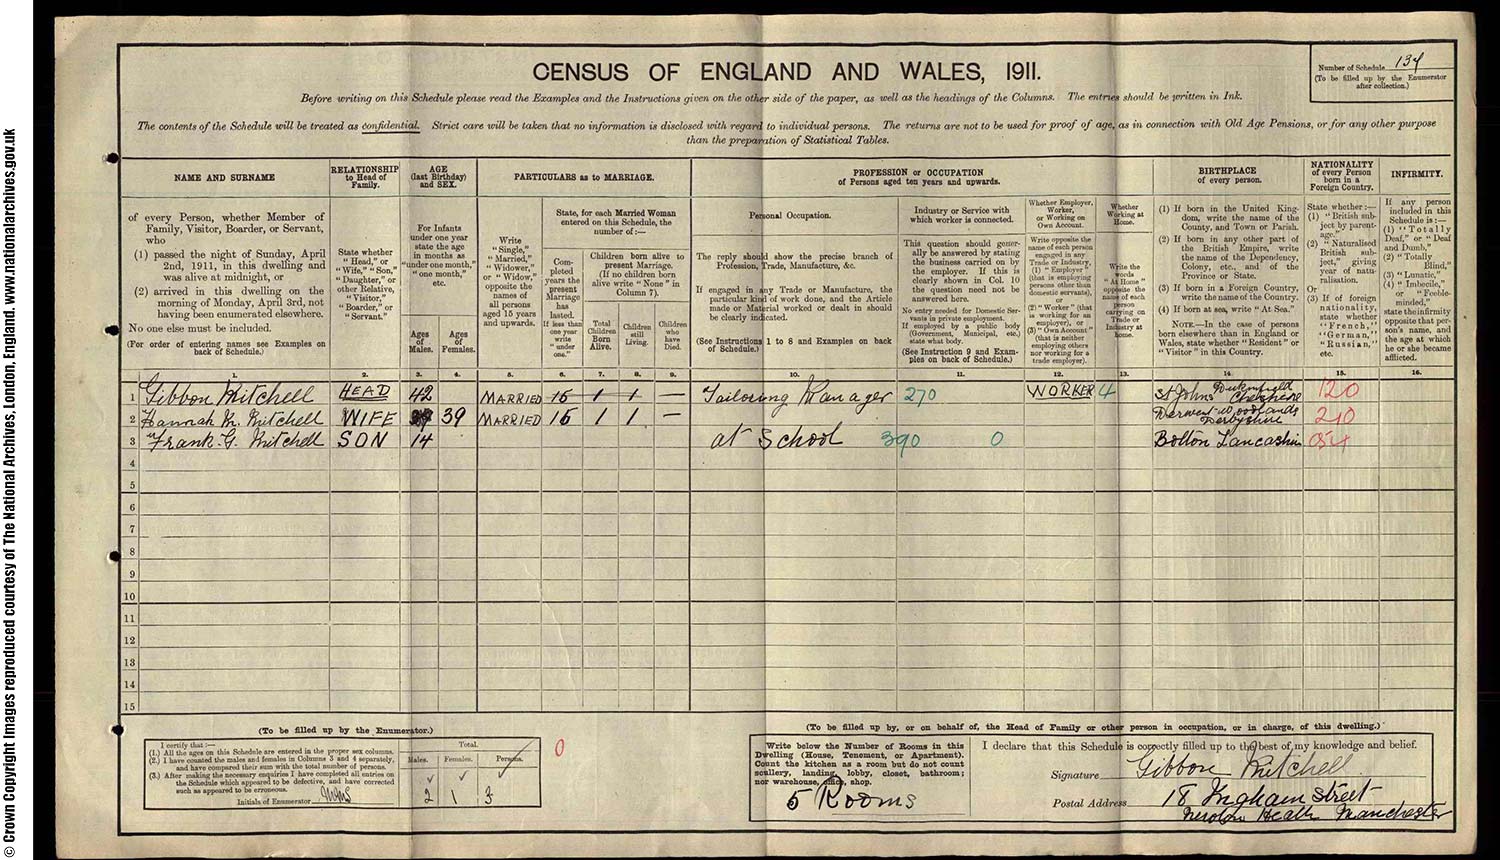 © Crown Copyright Images reproduced courtesy of The National Archives, London, England. www.nationalarchives.gov.uk
CENSUS OF ENGLAND AND WALES, 1911.
Number of Schedule 134
(To be filled up by the Enumerator
after collection.)
Before writing on this Schedule please read the Examples and the Instructions given on the other side of the paper, as well as the headings of the Columns. The entries should be written in Ink.
The contents of the Schedule will be treated as confidential. Strict care will be taken that no information is disclosed with regard to individual persons. The returns are not to be used for proof of age, as in connection with Old Age Pensions, or for any other purpose
than the preparation of Statistical Tables.
NAME AND SURNAME
of every Person, whether Member of
Family, Visitor, Boarder, or Servant,
who
(1) passed the night of Sunday, April
2nd, 1911, in this dwelling and
was alive at midnight, or
(2) arrived in this dwelling on the
morning of Monday, April 3rd, not
having been enumerated elsewhere.
No one else must be included.
(For order of entering names see Examples on
back of Schedule.)
RELATIONSHIP
to Head of
Family.
State whether
"Head," or
"Wife," "Son,"
"Daughter," or
other Relative,
"Visitor,"
"Boarder," or
"Servant."
AGE
(last Birthday)
and SEX.
For Infants
under one year
state the age
in months as
"under one month,"
"one month,"
etc.
Ages
of
Males.
Ages
of
Females.
PARTICULARS as to MARRIAGE.
Write
"Single,"
"Married,"
"Widower,"
or "Widow,"
opposite the
names of
all persons
aged 15 years
and upwards.
State, for each Married Woman
entered on this Schedule, the
number of:—
Com-
pleted
years the
present
Marriage
has
lasted.
If less than
one year
write
"under
one."
Children born alive to
present Marriage.
(If no children born
alive write "None" in
Column 7).
Total
Children
Born
Alive.
Children
still
Living.
Children
who
have
Died.
PROFESSION or OCCUPATION
of Persons aged ten years and upwards.
Personal Occupation.
The reply should show the precise branch of
Profession, Trade, Manufacture, &c.
If engaged in any Trade or Manufacture, the
particular kind of work done, and the Article
made or Material worked or dealt in should
be clearly indicated.
(See Instructions 1 to 8 and Examples on back
of Schedule.)
Industry or Service with
which worker is connected.
This question should gener-
ally be answered by stating
the business carried on by
the employer. If this is
clearly shown in Col. 10
the question need not be
answered here.
No entry needed for Domestic Ser-
vants in private employment.
If employed by a public body
(Government, Municipal, etc.)
state what body.
(See Instruction 9 and Exam-
ples on back of Schedule.)
Whether Employer,
Worker,
or Working on
Own Account.
Write opposite the
name of each person
engaged in any
Trade or Industry,
(1) "Employer"
(that is employing
persons other than
domestic servants),
or
(2) "Worker" (that
is working for an
employer), or
(3) "Own Account"
(that is neither
employing others
nor working for a
trade employer).
Whether
Working at
Home.
Write the
words
"At Home"
opposite the
name of each
person
carrying on
Trade or
Industry at
home.
BIRTHPLACE
of every person.
(1) If born in the United King-
dom, write the name of the
County, and Town or Parish.
(2) If born in any other part of
the British Empire, write
the name of the Dependency,
Colony, etc., and of the
Province or State.
(3) If born in a Foreign Country,
write the name of the Country.
(4) If born at sea, write "At Sea."
NOTE.—In the case of persons
born elsewhere than in England or
Wales, state whether "Resident" or
"Visitor" in this Country.
NATIONALITY
of every Person
born in a
Foreign Country.
State whether:—
(1) "British sub-
ject by parent-
age."
(2) "Naturalised
British sub-
ject," giving
year of natu-
ralisation.
Or
(3) If of foreign
nationality,
state whether
"French,"
"German,"
"Russian,"
etc.
INFIRMITY.
If any person
included in this
Schedule is:—
(1) "Totally
Deaf," or "Deaf
and Dumb,"
(2) "Totally
Blind,"
(3) "Lunatic,"
(4) "Imbecile,"
or "Feeble-
minded,"
state the infirmity
opposite that per-
son's name, and
the age at which
he or she became
afflicted.
1. 2. 3. 4. 5. 6. 7. 8. 9. 10. 11. 12. 13. 14. 15. 16.
1 Gibbon Mitchell HEAD 42 MARRIED 15 1 1 — Tailoring Manager 270 WORKER 4 St Johns Dukinfield Cheshire 120
2 Hannah M. Mitchell WIFE 39 39 MARRIED 15 1 1 — Derwent woodlands Derbyshire 210
3 Frank G. Mitchell SON 14 at School 390 0 Bolton Lancashire 054
4
5
6
7
8
9
10
11
12
13
14
15
(To be filled up by the Enumerator.)
I certify that:—
(1.) All the ages on this Schedule are entered in the proper sex columns.
(2.) I have counted the males and females in Columns 3 and 4 separately,
and have compared their sum with the total number of persons.
(3.) After making the necessary enquiries I have completed all entries on
the Schedule which appeared to be defective, and have corrected
such as appeared to be erroneous.
Initials of Enumerator
Total.
Males. Females. Persons.
2 1 3
0
(To be filled up by, or on behalf of, the Head of Family or other person in occupation, or in charge, of this dwelling.)
Write below the Number of Rooms in this
Dwelling (House, Tenement, or Apartment).
Count the kitchen as a room but do not count
scullery, landing, lobby, closet, bathroom;
nor warehouse, office, shop.
5 Rooms
I declare that this Schedule is correctly filled up to the best of my knowledge and belief.
Signature Gibbon Mitchell
Postal Address 18 Ingham street
Newton Heath Manchester